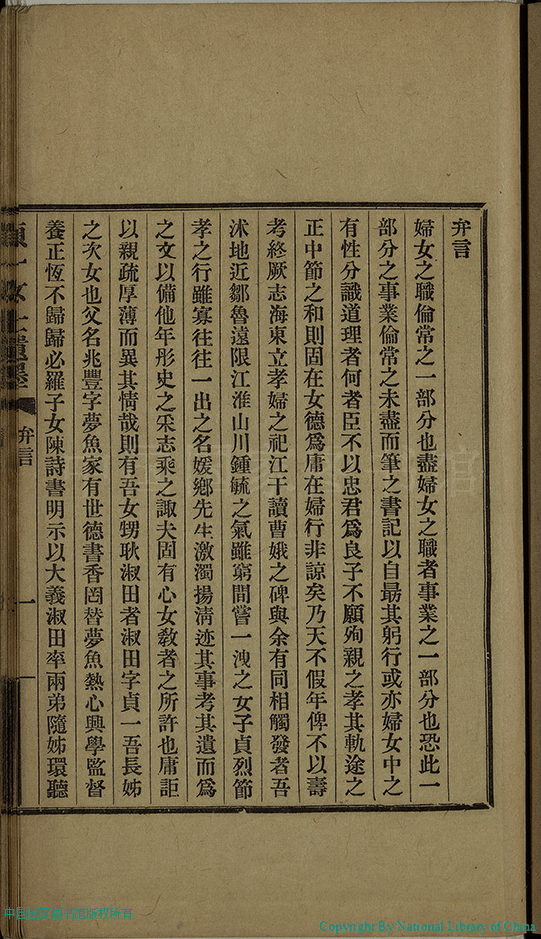 弁言
婦女之職倫常之一部分也盡婦女之職者事業之一部分也恐此一
部分之事業倫常之未盡而筆之書記以自最其躬行或亦婦女中之
有性分識道理者何者臣不以忠君爲良子不願殉親之孝其軌途之
正中節之和則固在女德爲庸在婦行非諒矣乃天不假年俾不以壽
考終厥志海東立孝婦之祀江干讀曹娥之碑與余有同相觸發者吾
沭地近鄒魯遠限江淮山川鍾毓之氣雖窮間嘗一洩之女子貞烈節
孝之行雖寡往往一出之名媛鄉先生激濁揚淸迹其事考其遺而爲
之文以備他年彤史之采志乘之諏夫固有心女敎者之所許也庸詎
以親疏厚薄而異其情哉則有吾女甥耿淑田者淑田字貞一吾長姊
之次女也父名兆豐字夢魚家有世德書香罔替夢魚熱心興學監督
養正恆不歸歸必羅子女陳詩書明示以大義淑田率兩弟隨姊環聽
貞一女士遺墨
弁言
一
Copyright By National Library of China